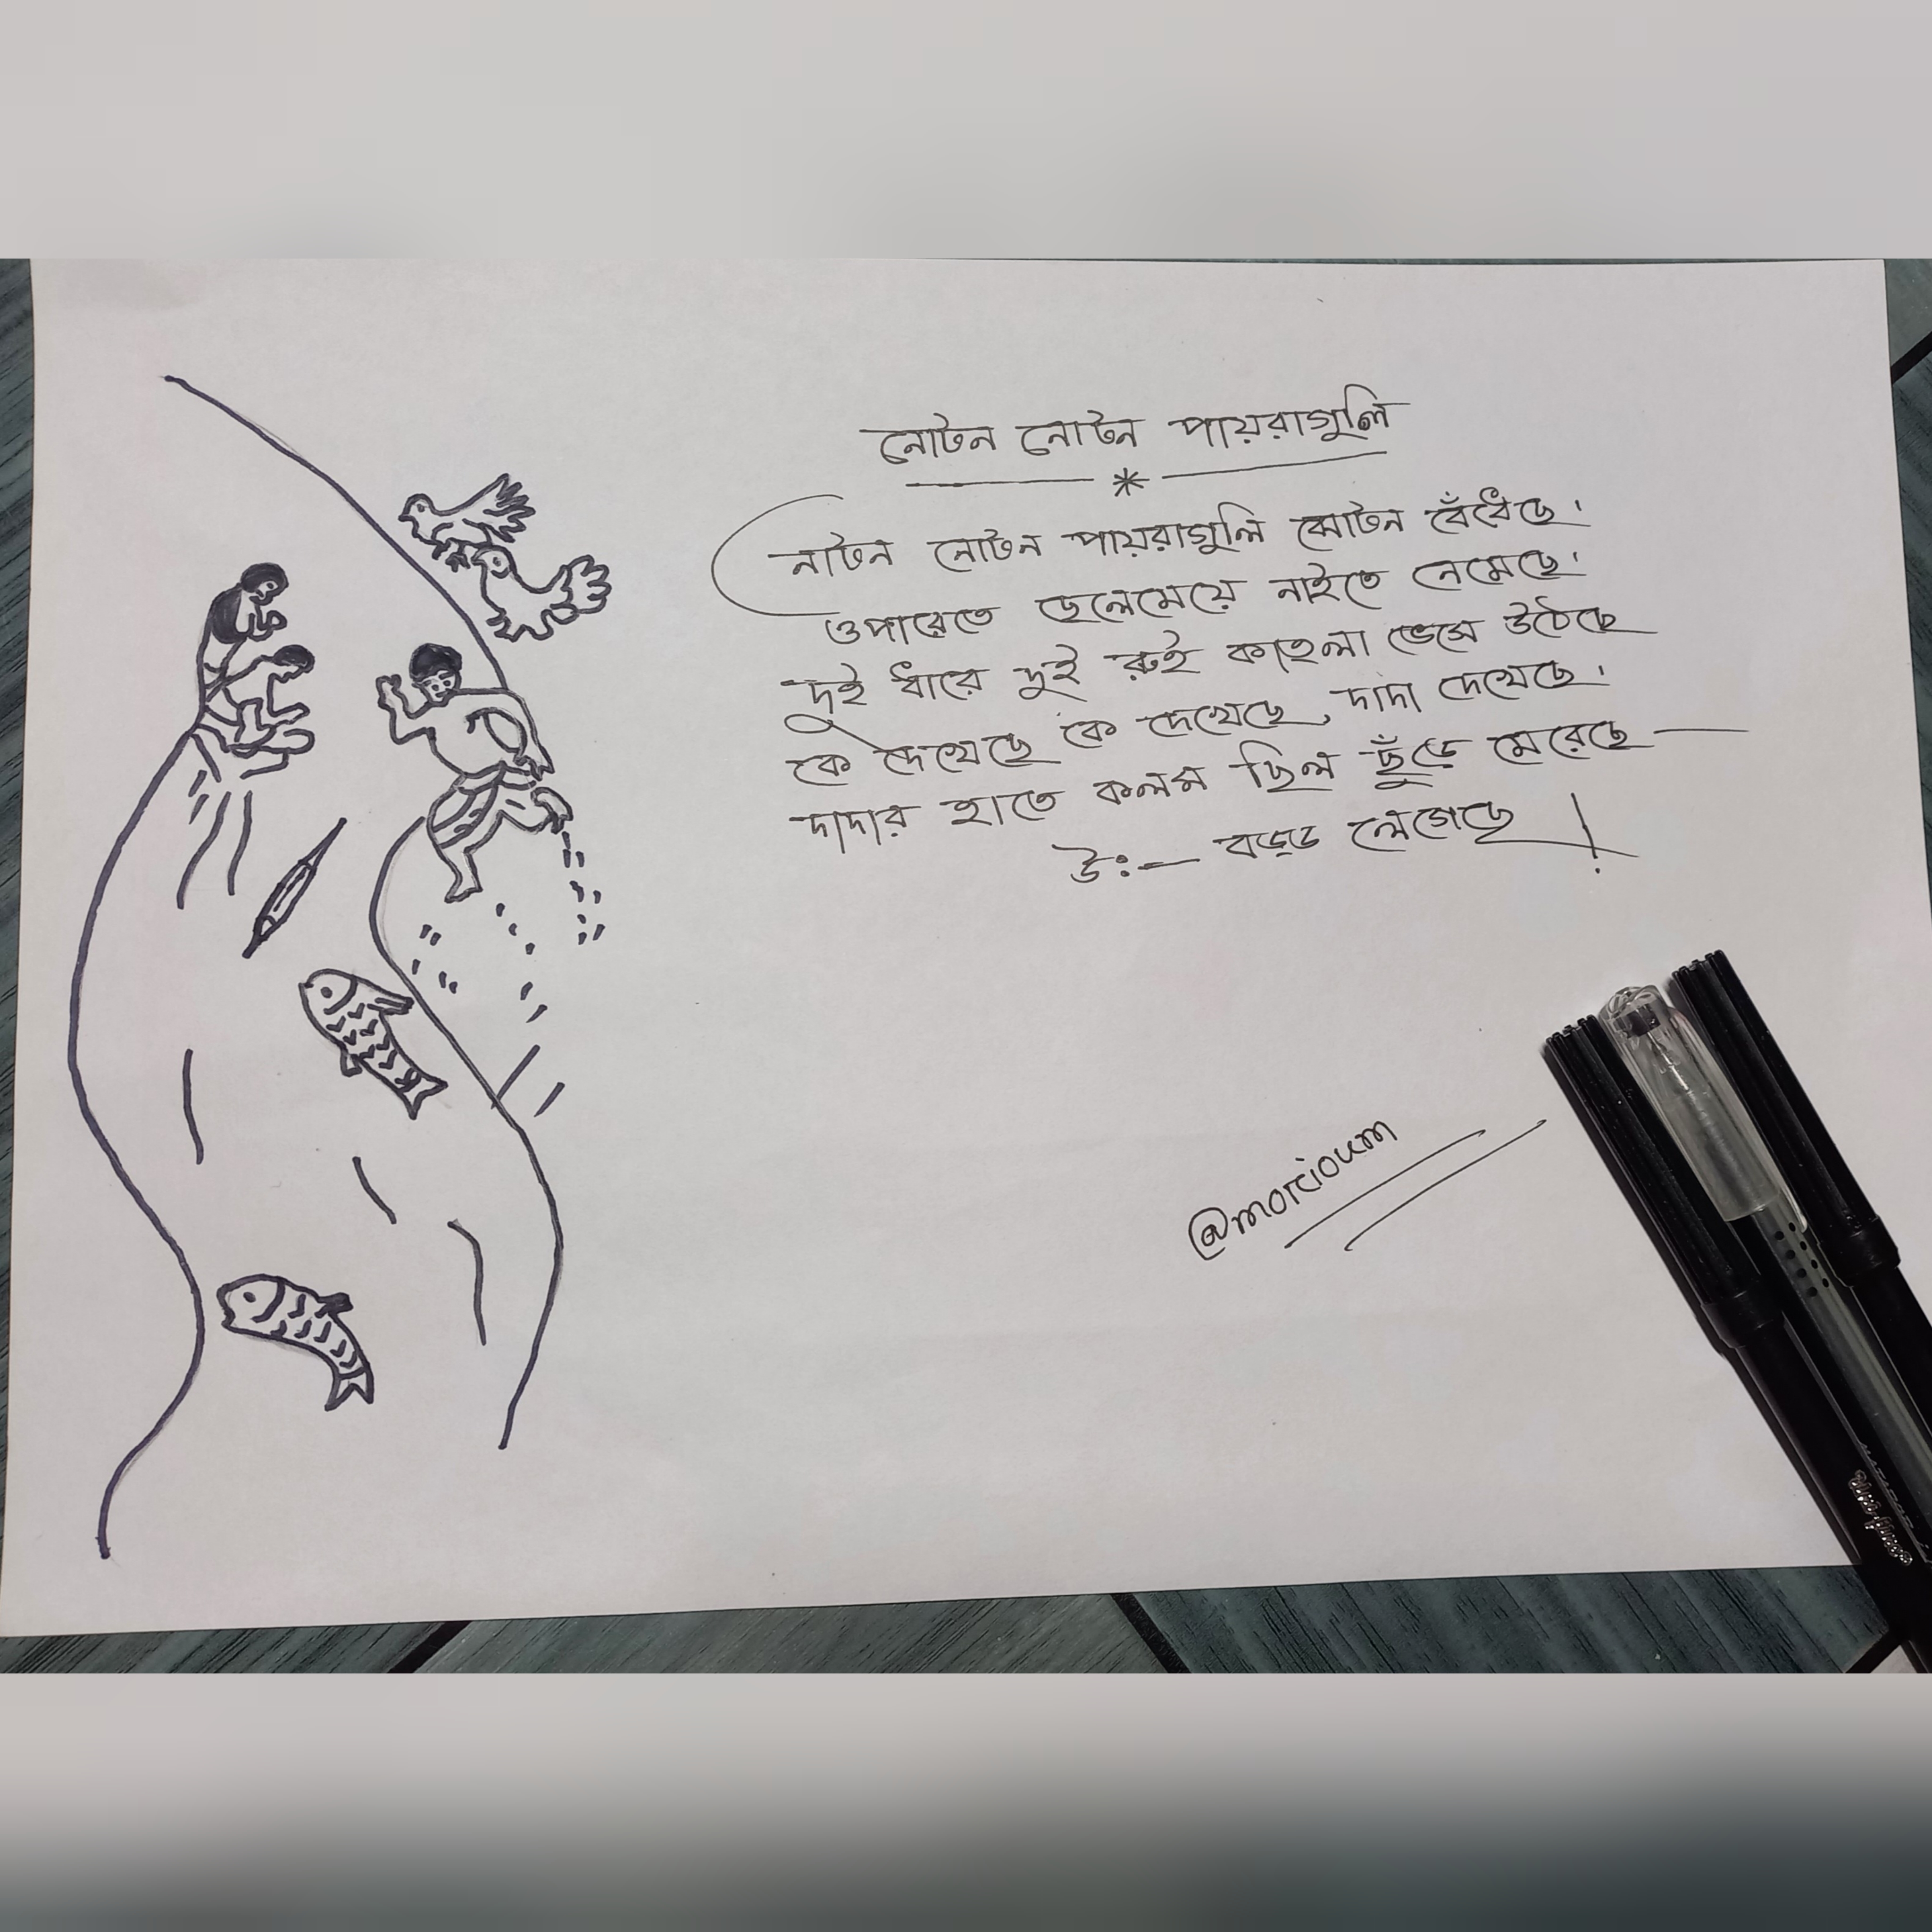 নোটন নোটন পায়রাগুলি
নোটন নোটন পায়রাগুলি ঝোটন বেঁধেছে।
ওপারেতে ছেলেমেয়ে নাইতে নেমেছে।
দুই ধারে দুই রুই কাতলা ভেসে উঠেছে
কে দেখেছে কে দেখেছে, দাদা দেখেছে।
দাদার হাতে কলম ছিল ছুঁড়ে মেরেছে—
উঃ— বড্ড লেগেছে!
@morioum